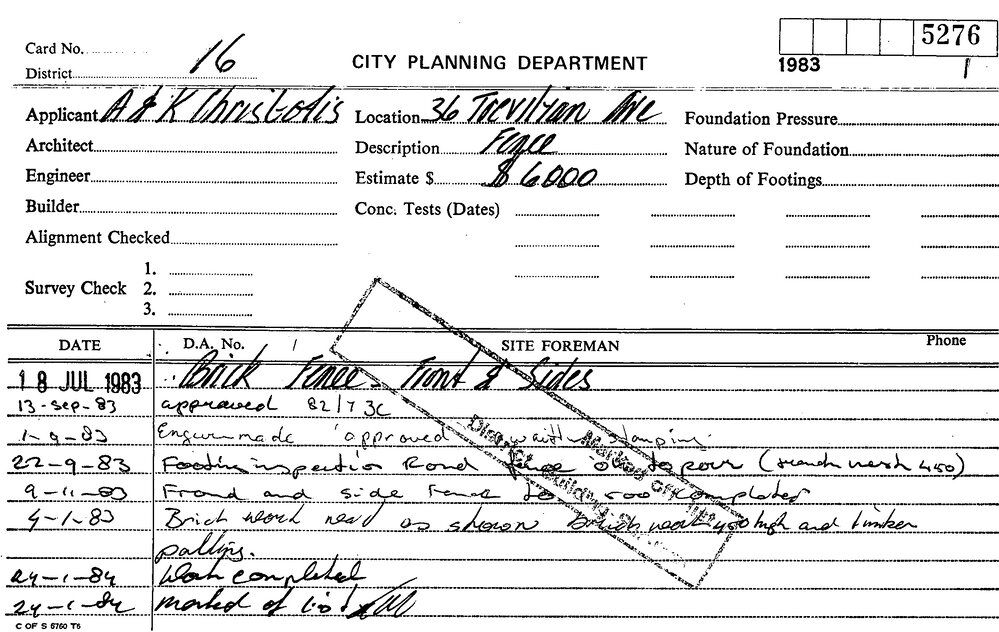 5276
Card No.
16
CITY PLANNING DEPARTMENT
1983 1
District
Applicant A & K Christofis Location 36 Trevilyan Ave Foundation Pressure
Architect Description Fence Nature of Foundation
Engineer Estimate $ $ 6000 Depth of Footings
Builder Conc. Tests (Dates)
Alignment Checked
1.
Survey Check 2.
3.
DATE D.A. No. SITE FOREMAN Phone
18 JUL 1983 Brick Fence - Front & Sides
13-Sep-83 approved 82/73C
1-9-83 approved
22-9-83 Footing inspection Road fence to pour
9-11-83 Front and side Fence to completed
4-1-83 Brick work as shown Brick work 450 high and timber
palings.
24-1-84 Work completed
24-1-84 marked of list
Marked off list
District Building
C OF S 6760 T6